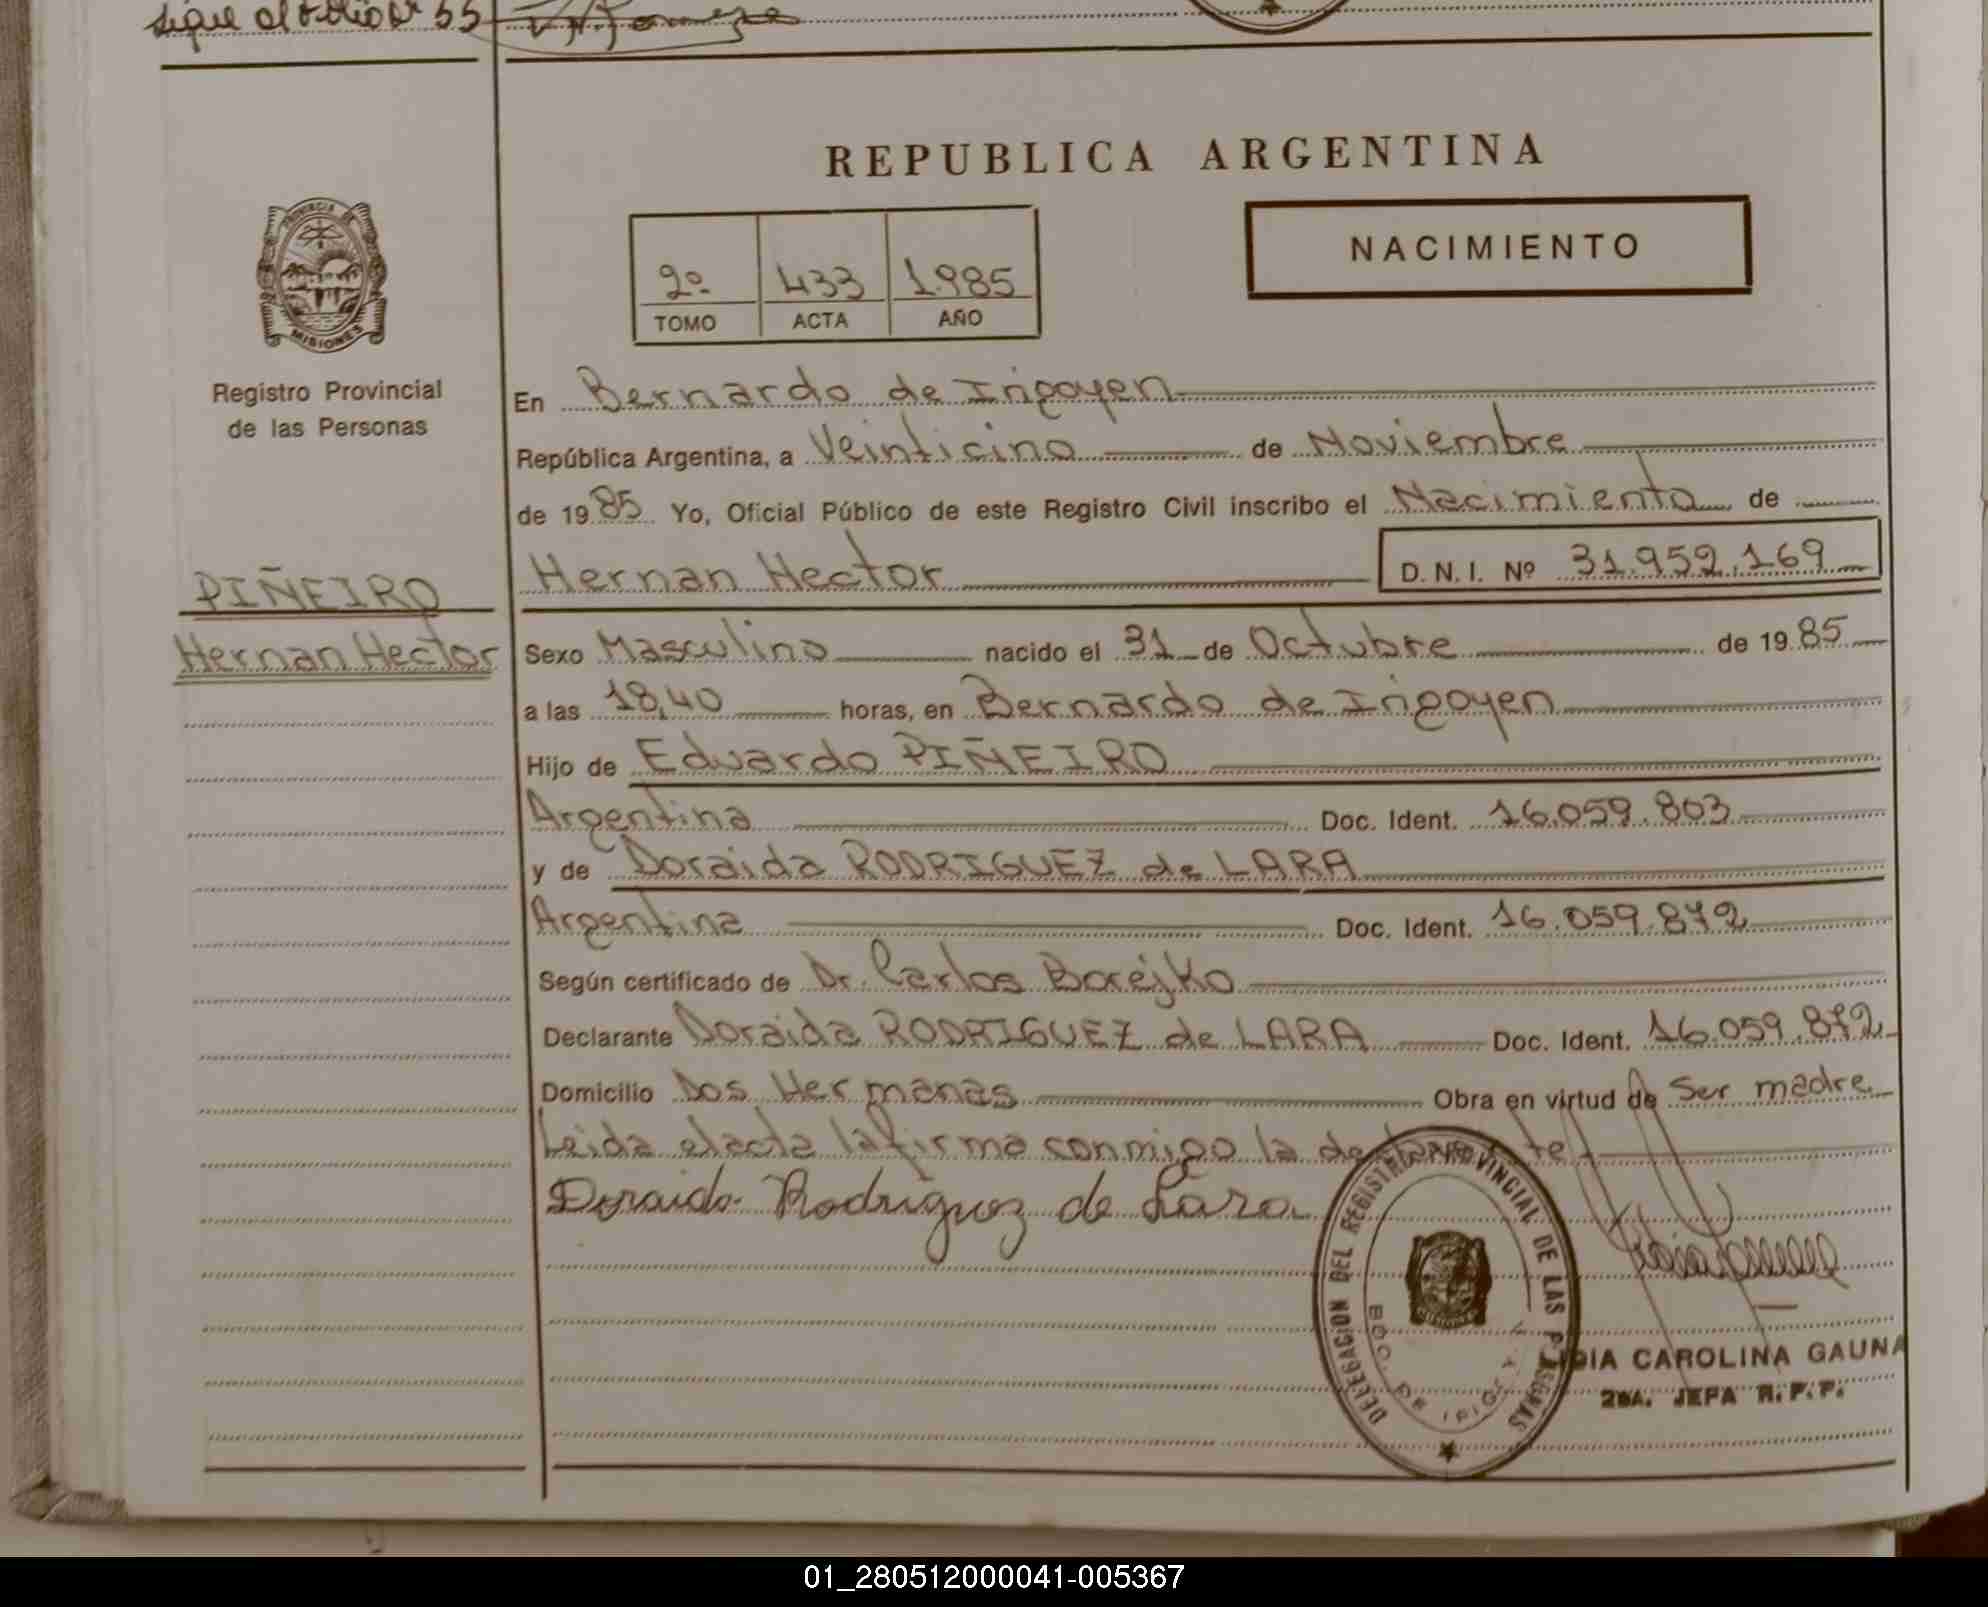 Sigue al folio Nº 55
REPUBLICA ARGENTINA
NACIMIENTO
2º 433 1.985
TOMO ACTA AÑO
PROVINCIA DE
MISIONES
Registro Provincial
de las Personas
En Bernardo de Irigoyen
República Argentina, a Veinticino de Noviembre
de 1985 Yo, Oficial Público de este Registro Civil inscribo el Nacimiento de
Hernan Hector D.N.I. Nº 31.952.169
PIÑEIRO
Hernan Hector
Sexo Masculino nacido el 31 de Octubre de 1985
a las 18,40 horas, en Bernardo de Irigoyen
Hijo de Eduardo PIÑEIRO
Argentina Doc. Ident. 16.059.803
y de Doraida RODRIGUEZ de LARA
Argentina Doc. Ident. 16.059.872
Según certificado de Dr. Carlos Borejko
Declarante Doraida RODRIGUEZ de LARA Doc. Ident. 16.059.872
Domicilio Dos Hermanas Obra en virtud de Ser madre
Leida elacta lafirma conmigo la declarante
Doraida Rodriguez de Lara
DELEGACION DEL REGISTRO PROVINCIAL DE LAS PERSONAS
BDO. DE IRIGOYEN
LIDIA CAROLINA GAUNA
2DA. JEFA R.P.P.
01_280512000041-005367